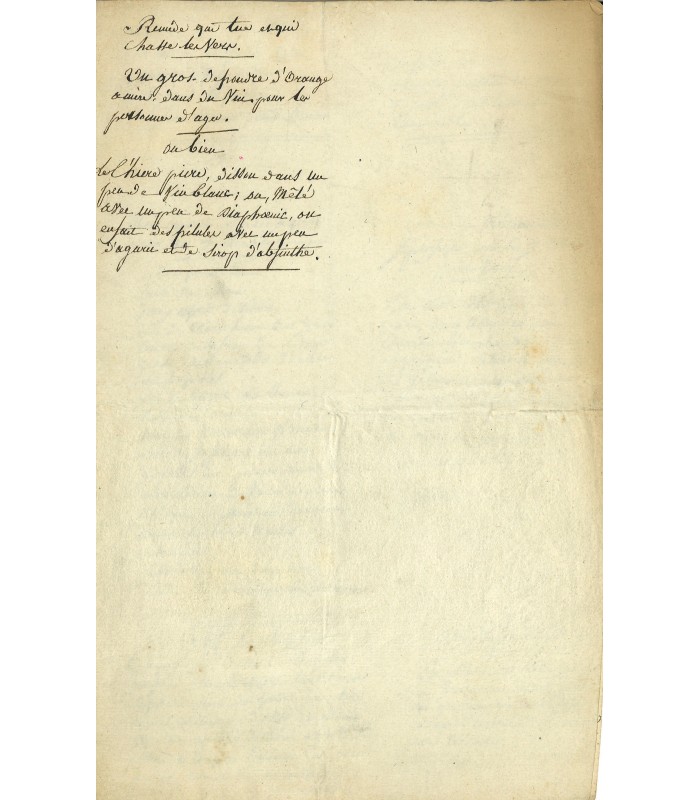 Remede qui tue et qui
chasse les Vers.
Un gros de poudre d'Orange
amire dans du Vin pour les
personnes d'ages.
ou bien
Le l'hiere picre, dissou dans un
peu de Vin blanc; ou, Mêlé
avec un peu de Diaphœnic, ou
enfait des pilules avec un peu
d'agaric et de Sirop d'absinthe.